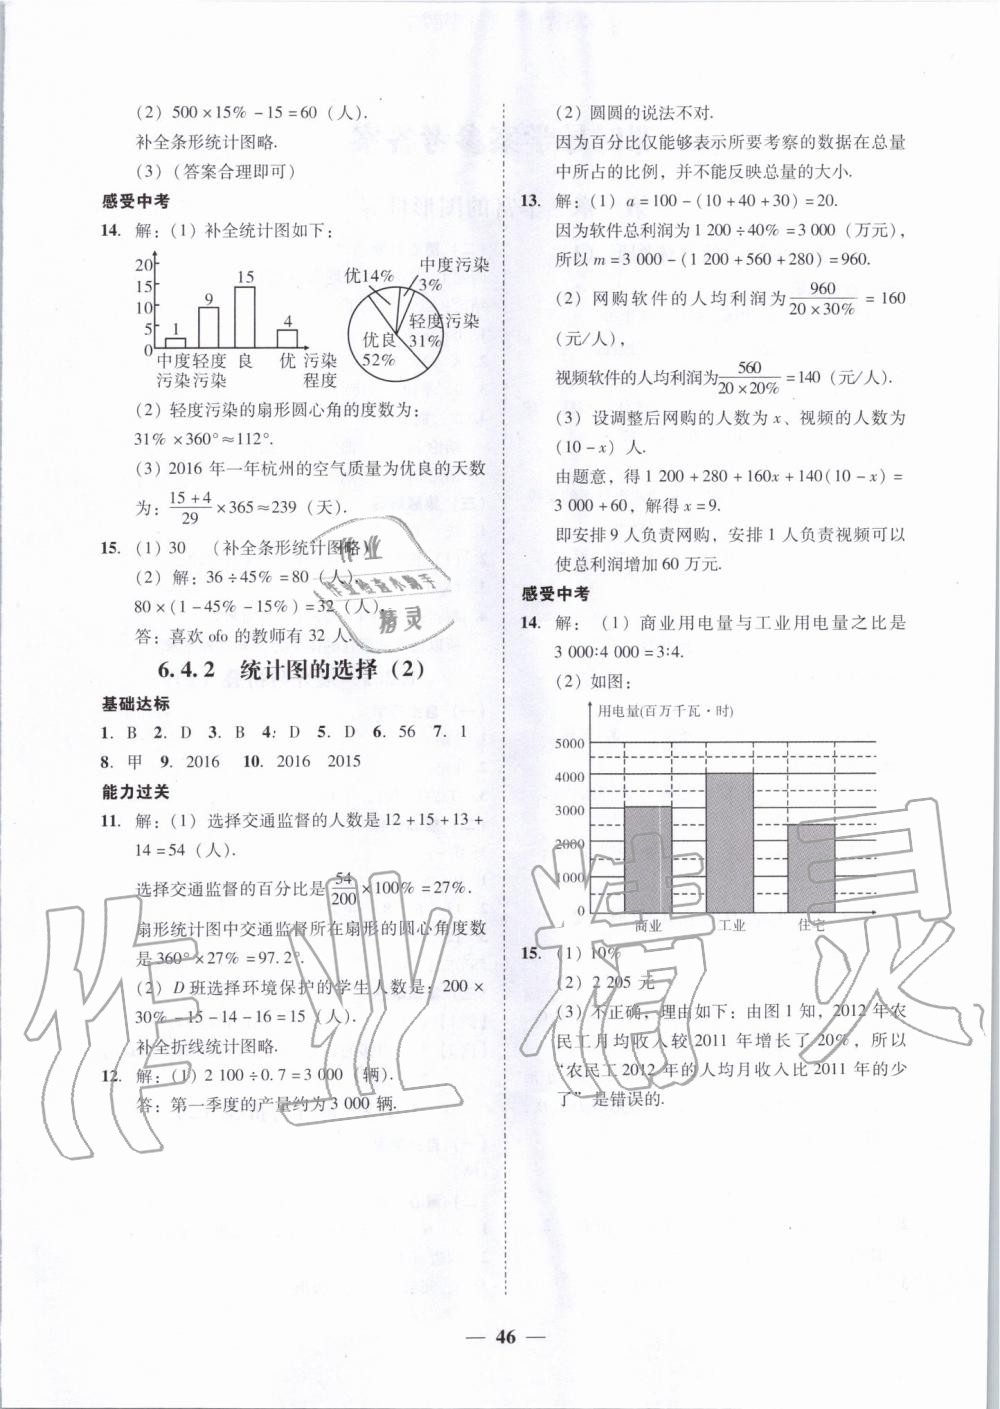 (2) 500×15%-15=60(人).
补全条形统计图略.
(3)(答案合理即可)
感受中考
14. 解:(1)补全统计图如下:
20
15
10
5
0
1
9
15
4
中度轻度 良 优 污染
污染污染 程度
优14%
中度污染
3%
轻度污染
31%
优良
52%
(2)轻度污染的扇形圆心角的度数为:
31%×360°≈112°.
(3)2016年一年杭州的空气质量为优良的天数
为:(15+4)/29×365≈239(天).
15. (1)30 (补全条形统计图略)
(2)解:36÷45%=80(人).
80×(1-45%-15%)=32(人).
答:喜欢ofo的教师有32人.
6.4.2 统计图的选择(2)
基础达标
1. B 2. D 3. B 4. D 5. D 6. 56 7. 1
8. 甲 9. 2016 10. 2016 2015
能力过关
11. 解:(1)选择交通监督的人数是12+15+13+
14=54(人).
选择交通监督的百分比是54/200×100%=27%.
扇形统计图中交通监督所在扇形的圆心角度数
是360°×27%=97.2°.
(2)D班选择环境保护的学生人数是:200×
30%-15-14-16=15(人).
补全折线统计图略.
12. 解:(1)2 100÷0.7=3 000(辆).
答:第一季度的产量约为3 000辆.
(2)圆圆的说法不对.
因为百分比仅能够表示所要考察的数据在总量
中所占的比例，并不能反映总量的大小.
13. 解:(1)a=100-(10+40+30)=20.
因为软件总利润为1 200÷40%=3 000(万元),
所以m=3 000-(1 200+560+280)=960.
(2)网购软件的人均利润为960/(20×30%)=160
(元/人),
视频软件的人均利润为560/(20×20%)=140(元/人).
(3)设调整后网购的人数为x、视频的人数为
(10-x)人.
由题意，得1 200+280+160x+140(10-x)=
3 000+60，解得x=9.
即安排9人负责网购，安排1人负责视频可以
使总利润增加60万元.
感受中考
14. 解:(1)商业用电量与工业用电量之比是
3 000:4 000=3:4.
(2)如图:
用电量(百万千瓦·时)
5000
4000
3000
2000
1000
0
商业 工业 住宅
15. (1)10%
(2)2 205元
(3)不正确，理由如下:由图1知，2012年农
民工月均收入较2011年增长了20%，所以
“农民工2012年的人均月收入比2011年的少
了”是错误的.
— 46 —
作业
作业检查小助手
精灵
作业精灵